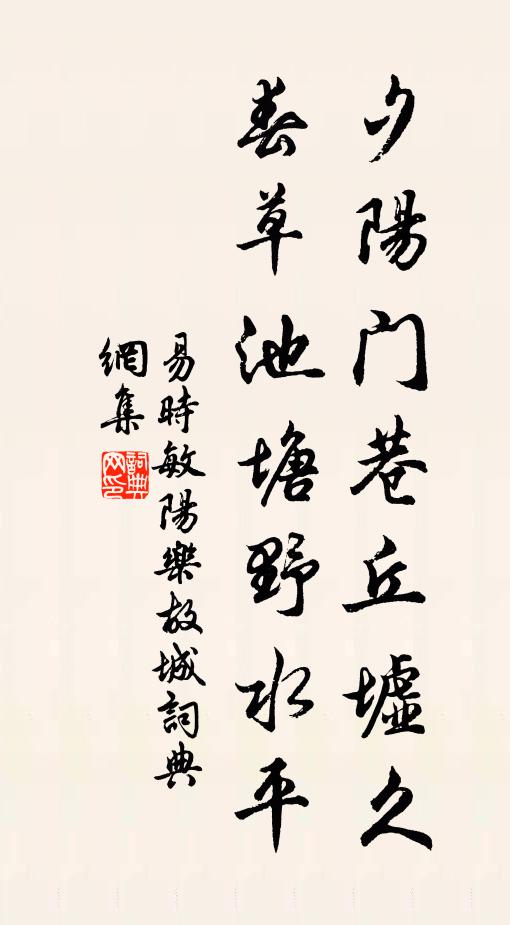 夕陽门巷丘墟久
春草池塘野水平
易時敏陽樂故城詞典
網集
詞典網印